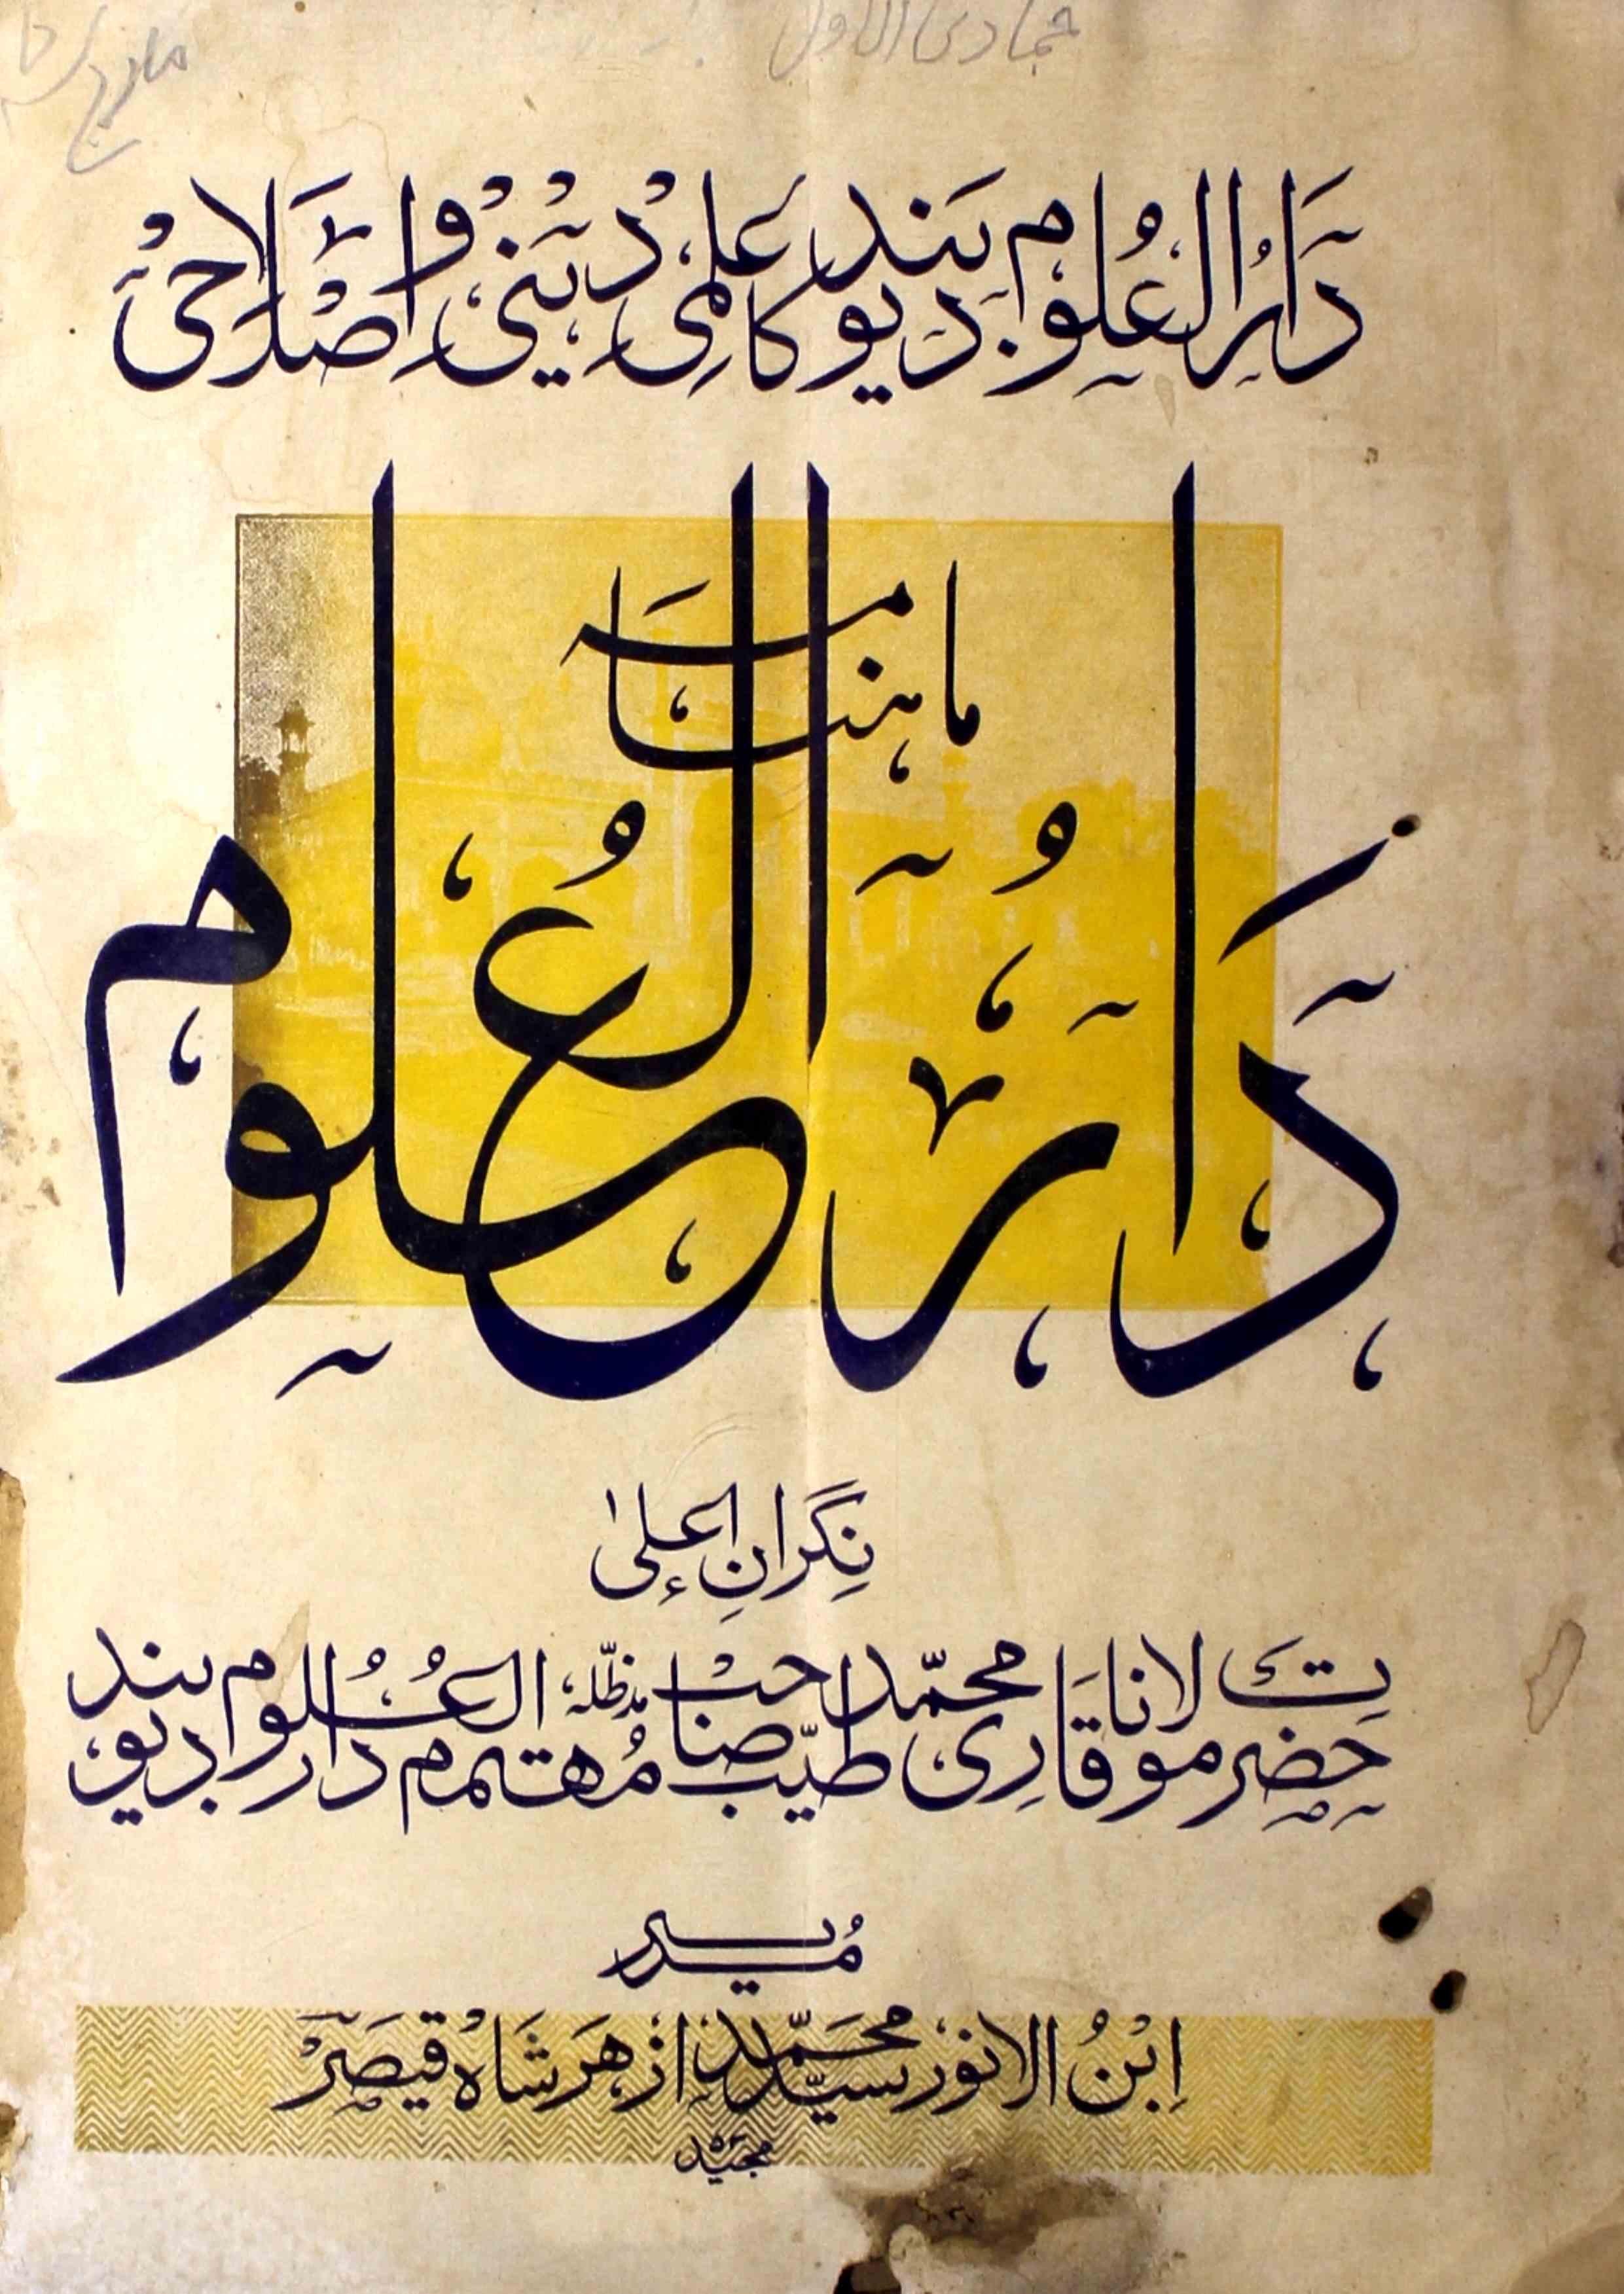 جمادی الاول
مارچ
دَارُالعُلوم دیوبَند کا عِلمی دینی و اصلَاحی
ماہنامہ
دَارُالعُلوم
نِگرانِ اعلیٰ
حضرت مولانا قاری محمّد طیّب صاحب مدظلّہ مُہتمم دارالعُلوم دیوبند
مُدیر
اِبنُ الانور سیّد محمّد ازہر شَاہ قیصَر
مجید